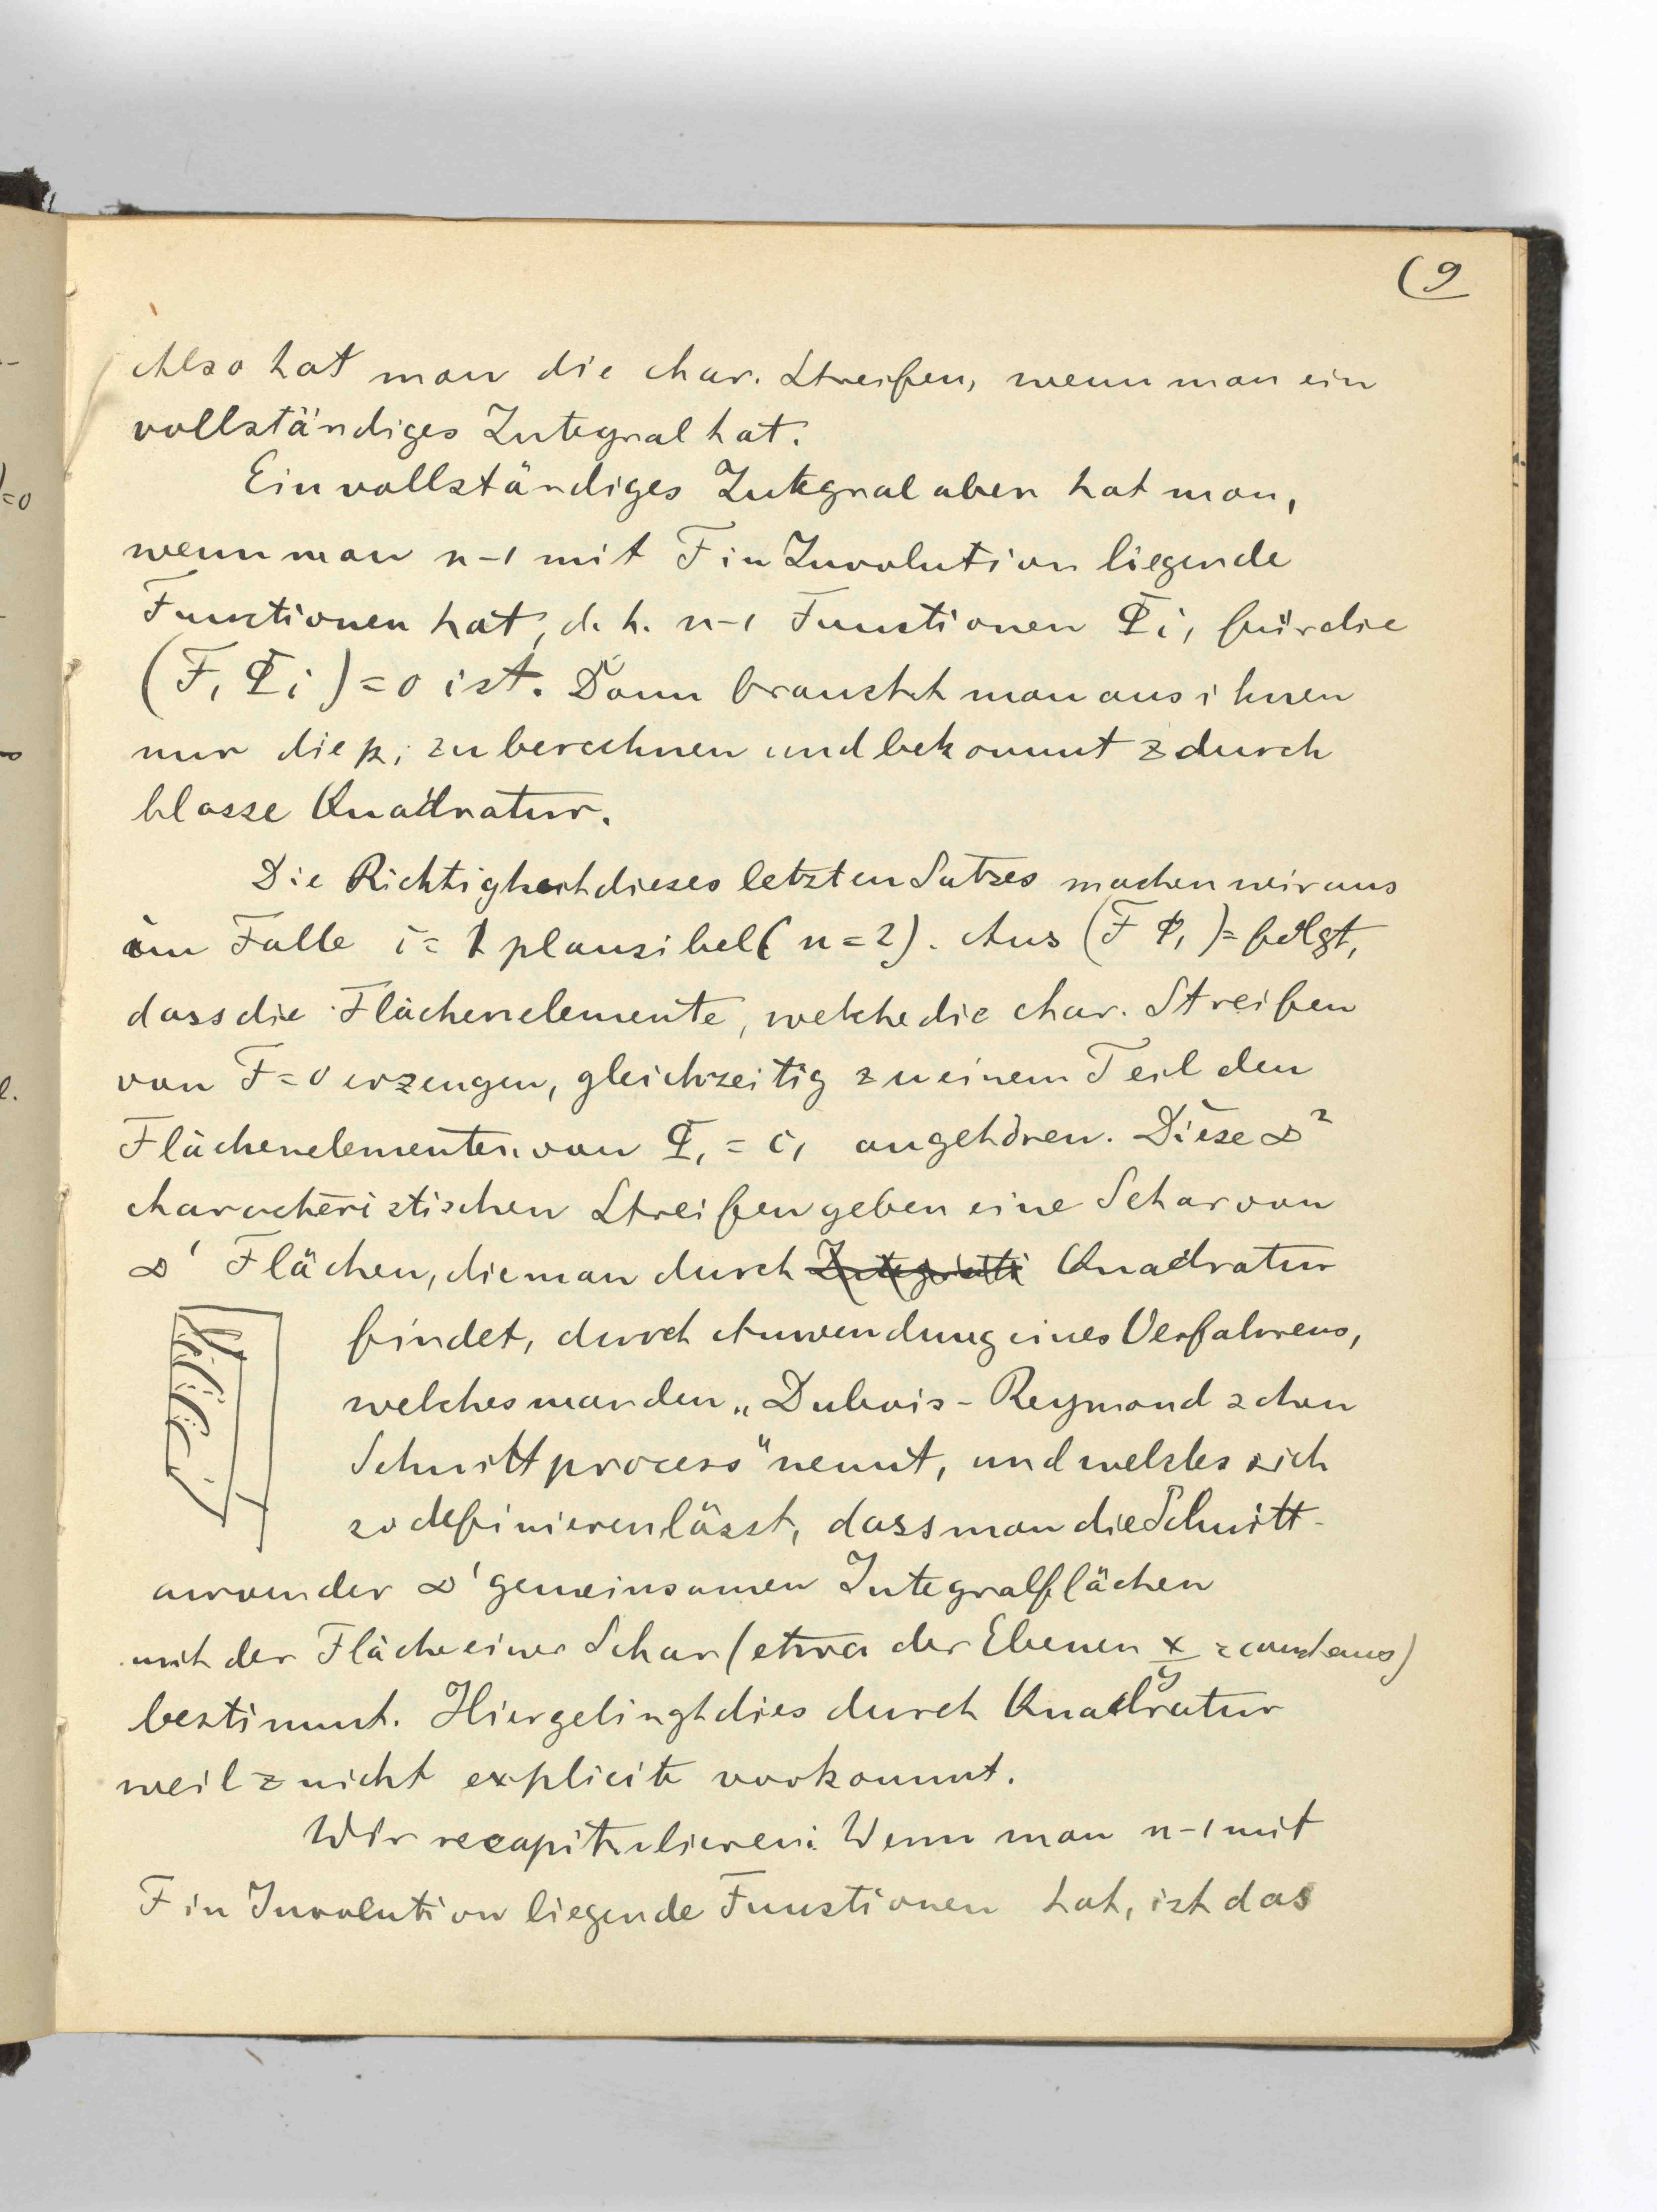 (9
Also hat man die char. Streifen, wenn man ein
vollständiges Integral hat.
Ein vollständiges Integral aber hat man,
wenn man n-1 mit F in Involution liegende
Functionen hat, d. h. n-1 Functionen Φi, für die
(F, Φi) = 0 ist. Dann braucht man aus ihnen
nur die pi zu berechnen und bekommt z durch
blosse Quadratur.
Die Richtigkeit dieses letzten Satzes machen wir uns
im Falle i = 1 plausibel (n = 2). Aus (F Φ1) = folgt,
dass die Flächenelemente, welche die char. Streifen
von F = 0 erzeugen, gleichzeitig zu einem Teil den
Flächenelementen von Φ1 = c1 angehören. Diese ∞²
characteristischen Streifen geben eine Schar von
∞¹ Flächen, die man durch Quadratur
findet, durch Anwendung eines Verfahrens,
welches man den „Dubois-Reymondschen
Schnittprocess" nennt, und welches sich
so definieren lässt, dass man die Schnitt-
curven der ∞¹ gemeinsamen Integralflächen
mit der Fläche einer Schar (etwa der Ebenen x/y = constans)
bestimmt. Hier gelingt dies durch Quadratur
weil z nicht explicite vorkommt.
Wir recapitulieren: Wenn man n-1 mit
F in Involution liegende Functionen hat, ist das